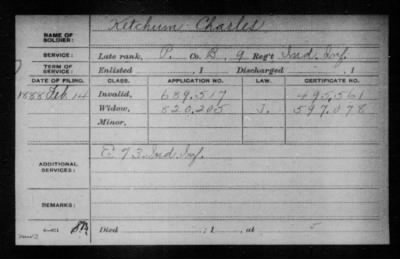 NAME OF SOLDIER: Ketchum Charles
SERVICE: Late rank, P. Co. B, 9 Reg't Ind. Inf.
TERM OF SERVICE: Enlisted , 1 Discharged , 1
DATE OF FILING. CLASS. APPLICATION NO. LAW. CERTIFICATE NO.
1888 Feb 14 Invalid, 689.517 495.561
Widow, 820,205 J. 597,078
Minor,
ADDITIONAL SERVICES: E 73 Ind Inf.
REMARKS:
Died , 1 , at